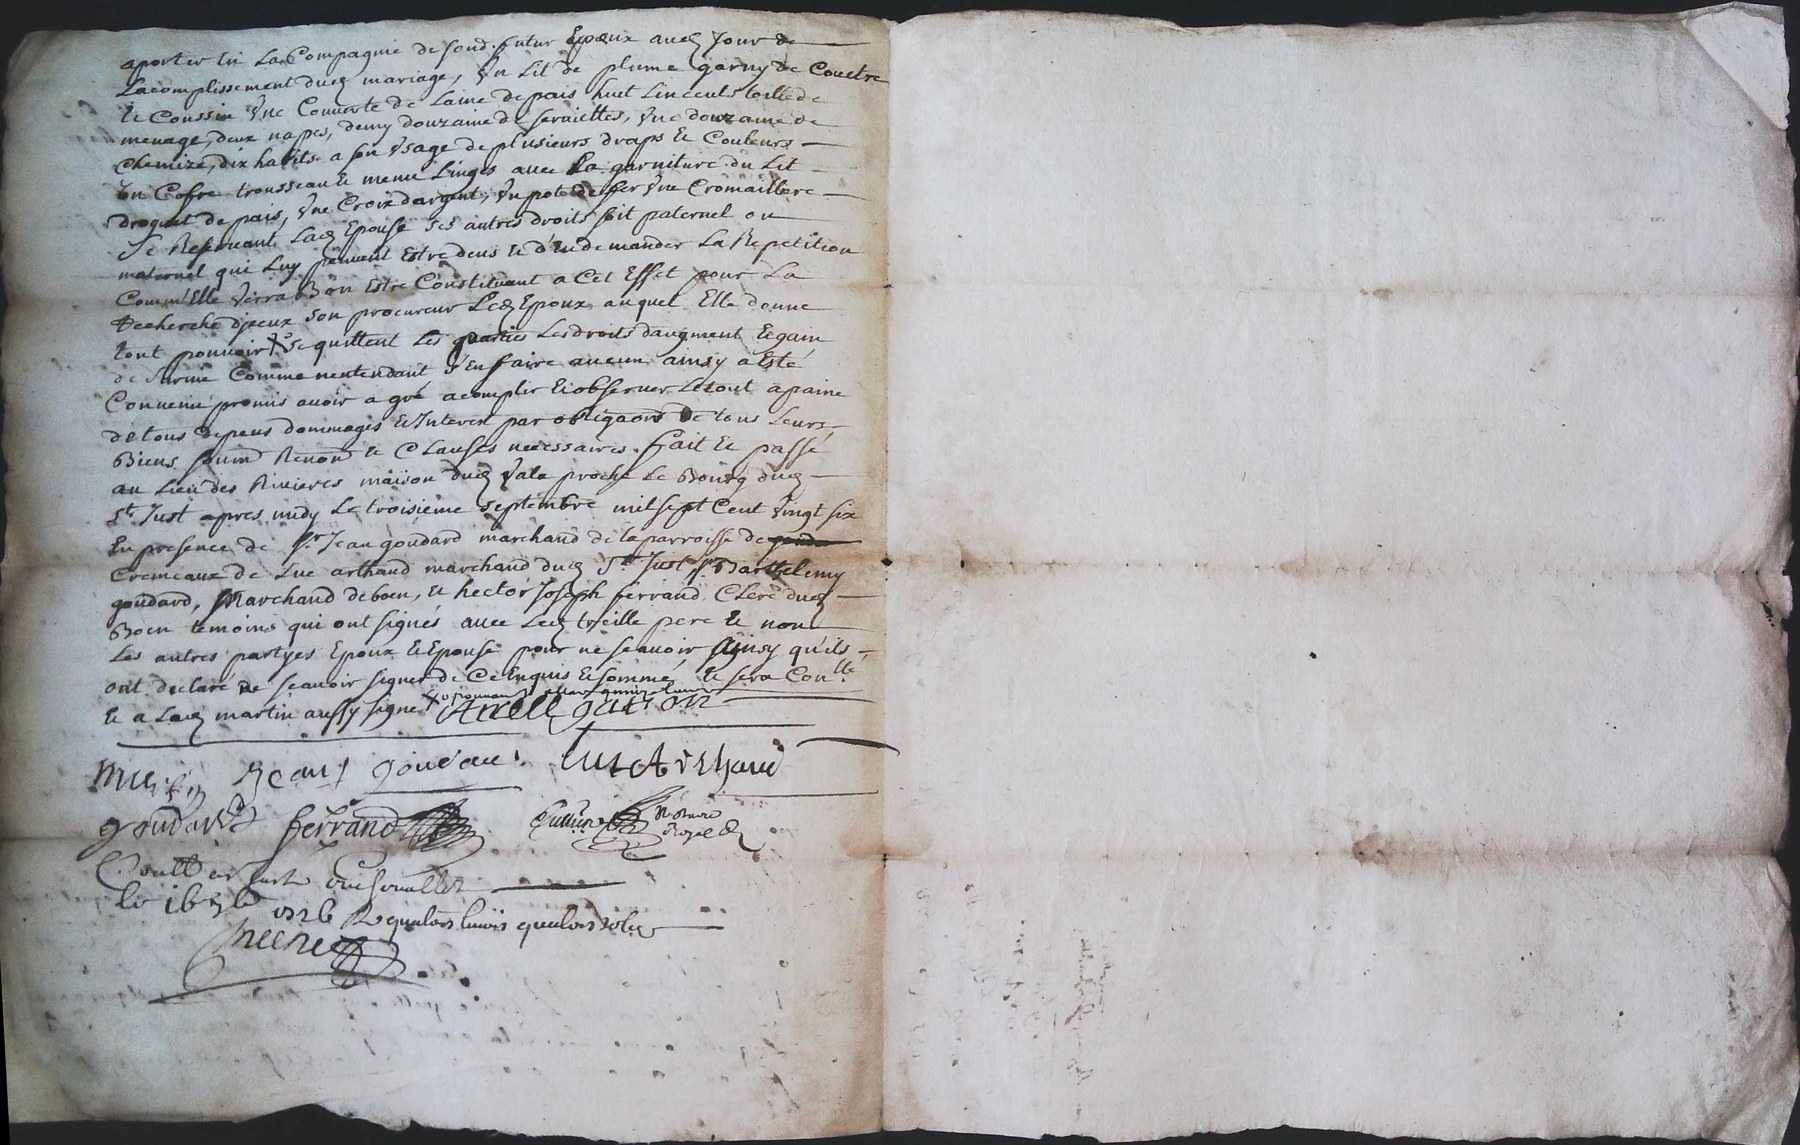 aporter en La Compagnie de sond. futur Epoux au d. Jour de
Lacomplissement dud. mariage, Un Lit de plume garny de Couetre
Et Coussin Une Couverte de Laine de pais huit Linceuls toille de
menage, deux napes, demy douzaine de serviettes, Une douzaine de
Chemize, dix habits a son Usage de plusieurs draps Et Couleurs
Un Cofre trousseau Et menu Linges avec La garniture du Lit
droguet de pais, Une Croix dargent, Un pot de ffer Une Cromaillere
Se Reservant Lad. Epouse ses autres droits soit paternel ou
maternel qui Luy peuvent Estre deus Et d'en demander La Repetition
Comm'Elle verra Bon Estre Constituant a Cet Effet pour La
Recherche d'jceux son procureur Led. Epoux auquel Elle donne
tout pouvoir Se quittent Les parties Les droits daugment Et gain
de survie Comme nentendant S'en faire aucun ainsy a Esté
Convenu promis avoir a gré acomplir Et observer Le tout a paine
de tous depens dommages Et Interest par obligaons De tous Leurs
Biens soum. Renon. Et Clauses necessaires. ffait Et passé
au Lieu des Rivieres maison dud. Vala proche Le Bourg dud.
St. Just apres midy Le troisième septembre mil sept Cent Vingt six
En presence de Sr. Jean goudard marchand de la parroisse de
Cremeaux de Luc arthaud marchand dud. St. Just Sr. Barthelemy
goudard, Marchand de boen, Et hector Joseph ferrand Clerc dud.
Boen temoins qui ont signés avec Led. treille pere Et non
Les autres partyes Epoux Et Epouse pour ne scavoir Ainsy qu'ils
ont declaré ne scavoir signer de Ce Enquis Et sommé, Et sera Con.lle
Et a Lad. martin aussy signé
Jean goudard Luc Arthaud
goudard ferrand Nore. Royal
Conllé
Le 16 7bre 1726